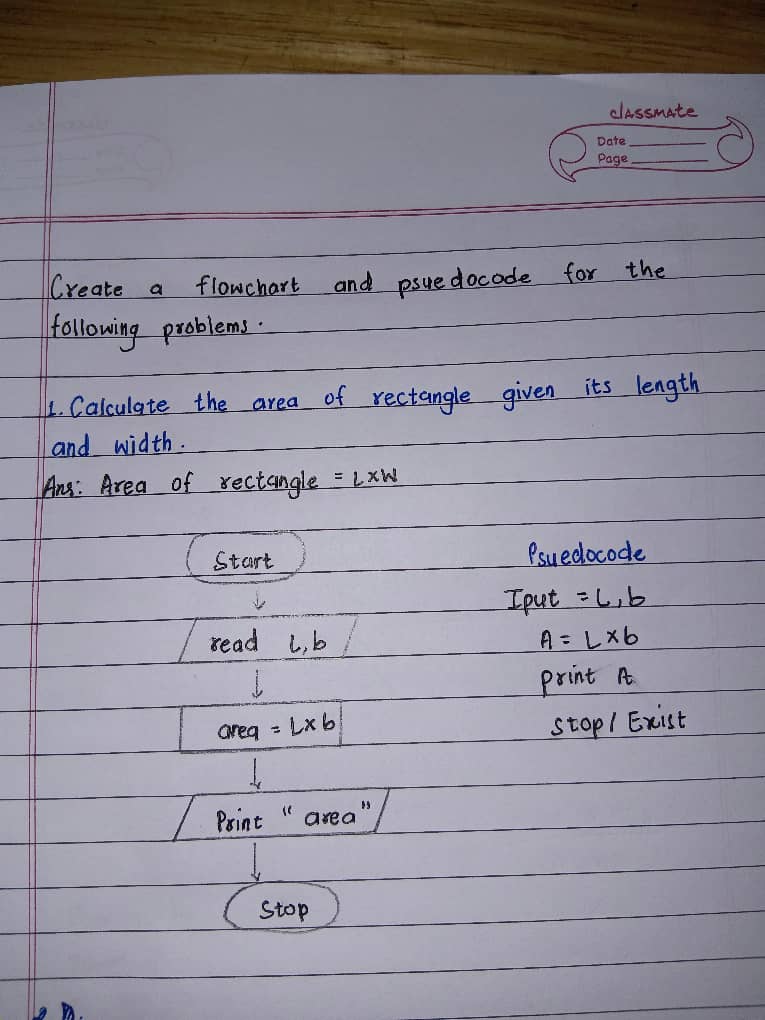 classmate
Date
Page
Create a flowchart and psuedocode for the
following problems.
1. Calculate the area of rectangle given its length
and width.
Ans: Area of rectangle = L×W
Start
read L,b
area = L×b
Print "area"
Stop
Psuedocode
Iput = L,b
A = L×b
print A
stop/ Exist